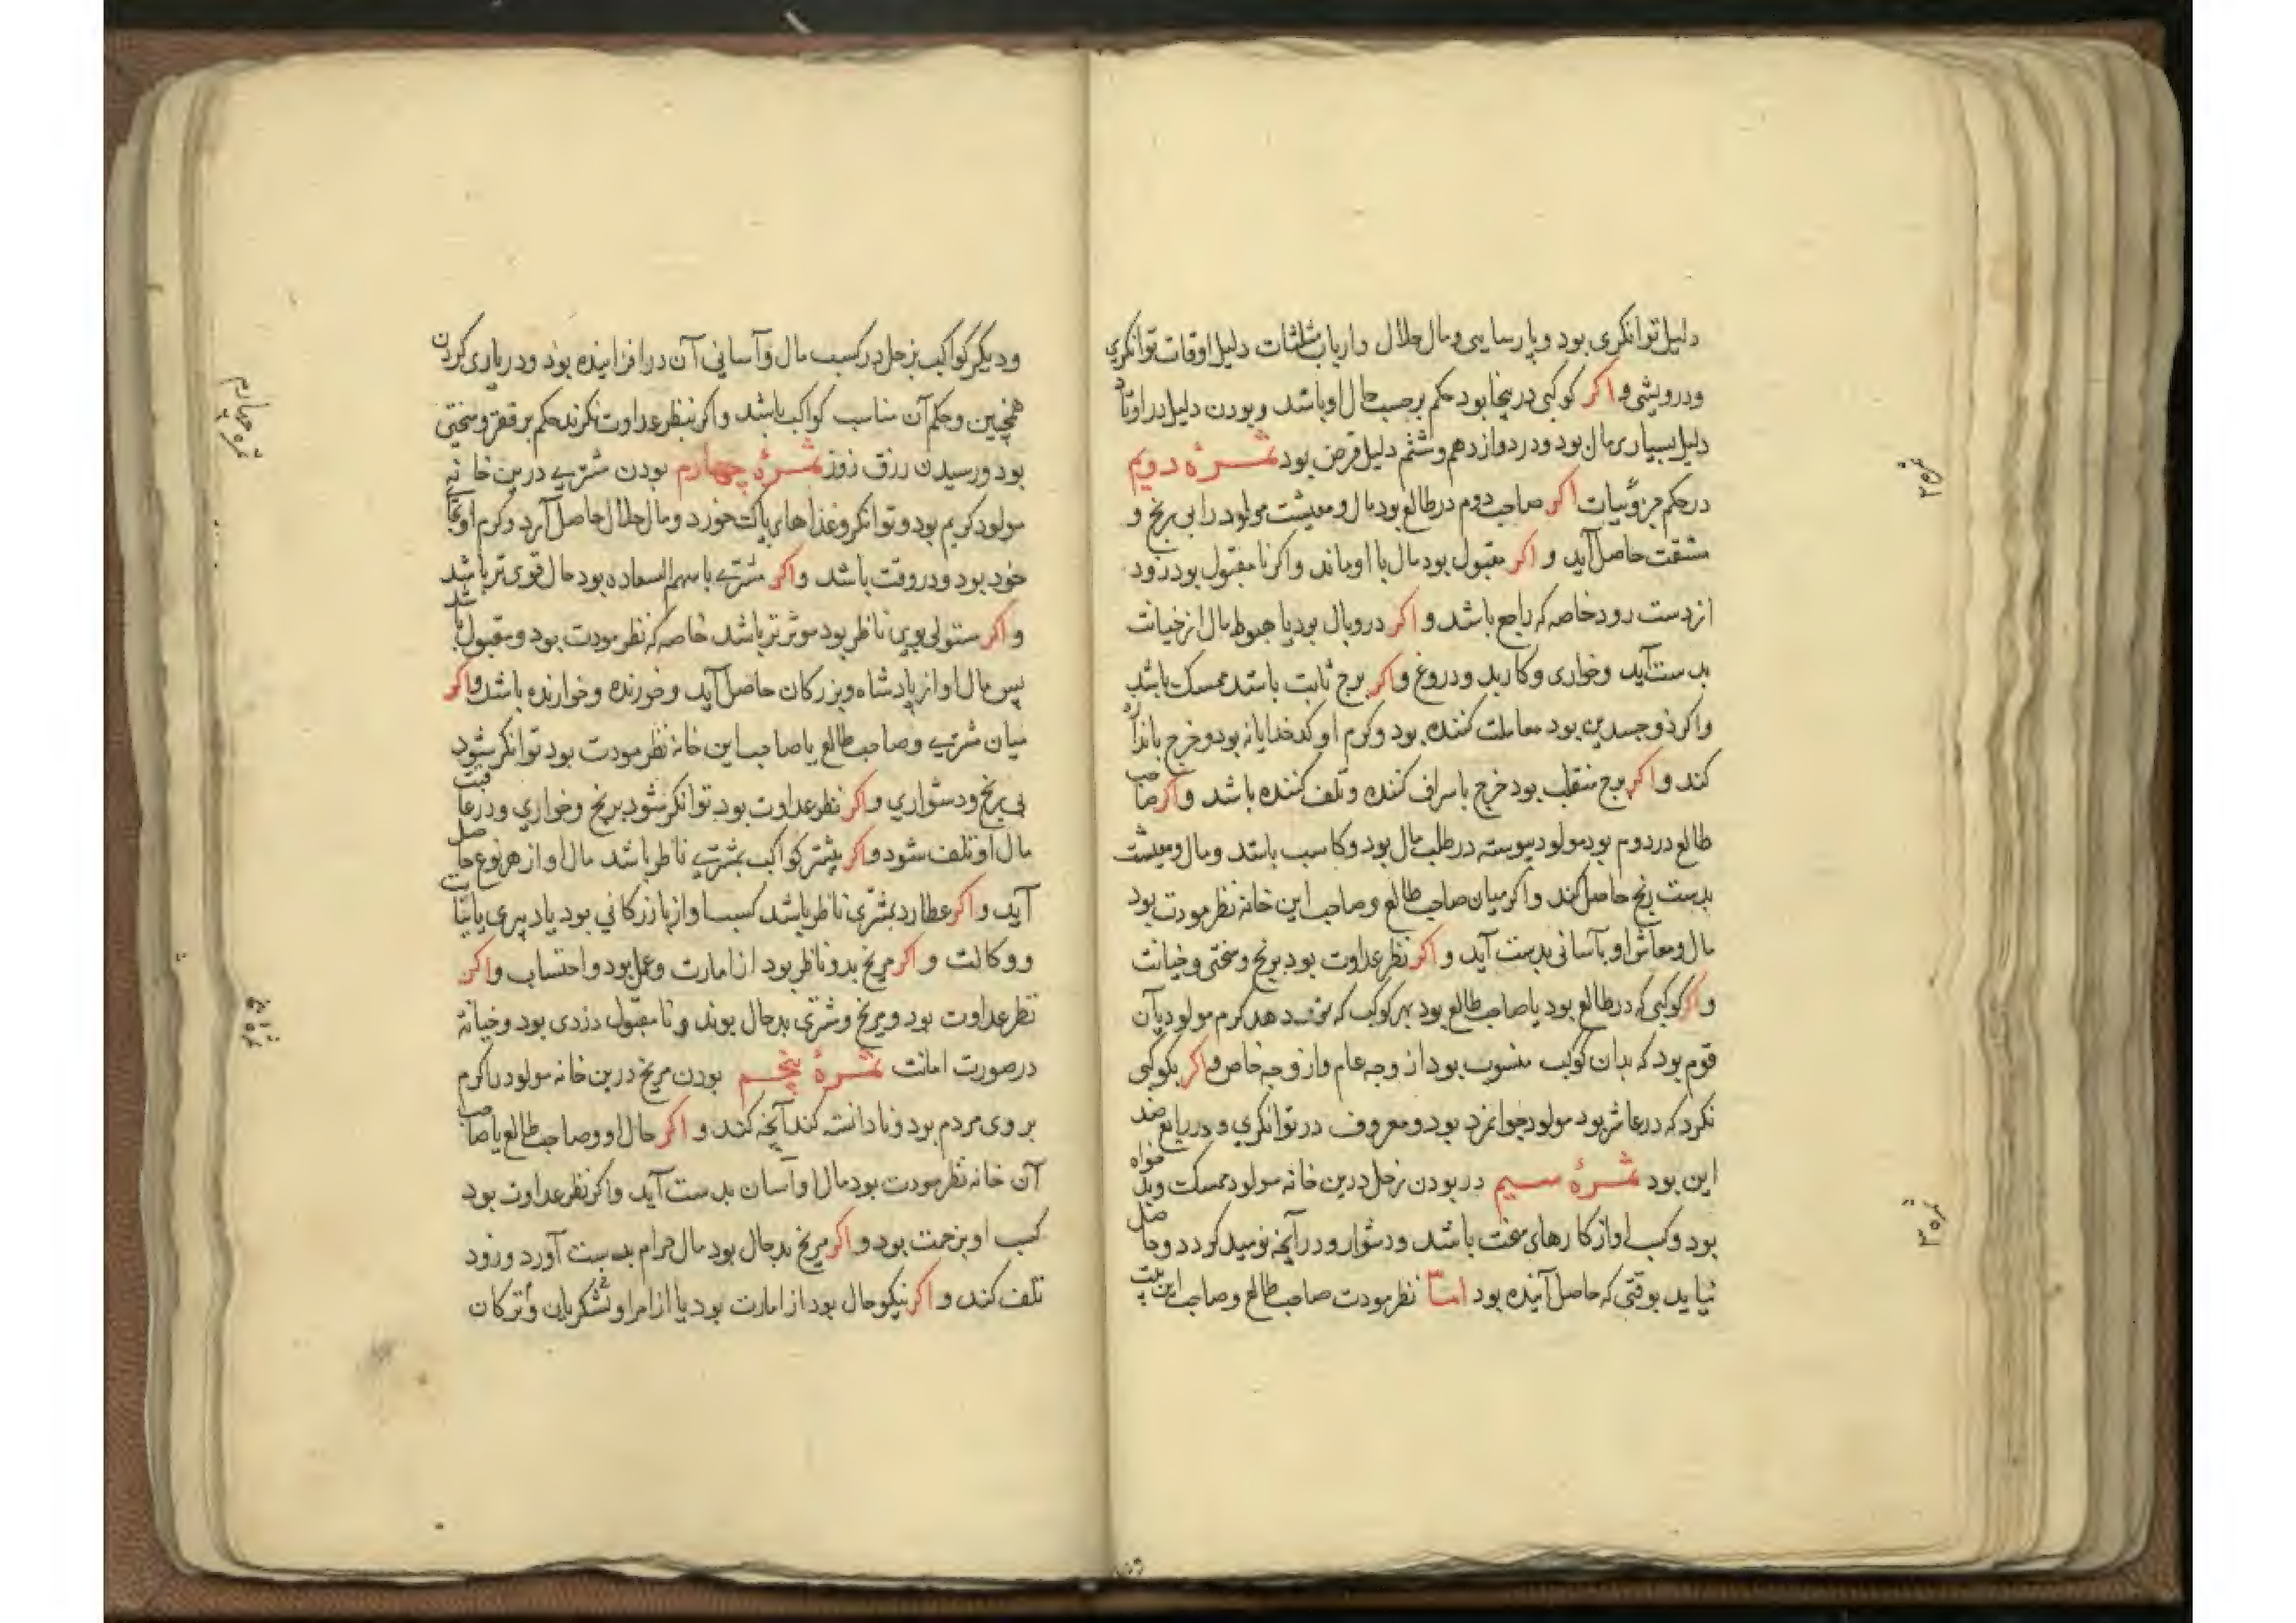 دلیل توانکری بود و پارسایی و مال حلال و ارباب مثلثات دلیل اوقات توانکری
و درویشی و اکر کوکبی درینجا بود حکم برحسب حال او باشد و بودن دلیل در اوتاد
دلیل بسیاری مال بود و در دوازدهم و ششم دلیل قرض بود ثمرهٔ دویم
در حکم جزویات اکر صاحب دوم در طالع بود مال و معیشت مولود را بی رنج و
مشقت حاصل آید و اکر مقبول بود مال با او ماند و اکر نا مقبول بود زود
از دست رود خاصه که راجع باشد و اکر در وبال بود یا هبوط مال از خیانت
بدست آید و خواری و کار بد و دروغ و اکر برج ثابت باشد ممسک باشد
و اکر ذوجسدین بود معاملت کننده بود و کرم او کدخدایانه بود و خرج باندازه
کند و اکر برج منقلب بود خرج باسراف کننده و تلف کننده باشد و اکر صاحب
طالع در دوم بود مولود پیوسته در طلب مال بود و کاسب باشد و مال و معیشت
بدست رنج حاصل کند و اکر میان صاحب طالع و صاحب این خانه نظر مودت بود
مال و معاش او بآسانی بدست آید و اکر نظر عداوت بود برنج و سختی و خیانت
و اکر کوکبی که در طالع بود یا صاحب طالع بود بهر کوکب که قوت دهد کرم مولود بآن
قوم بود که بدان کوکب منسوب بود از وجه عام و از وجه خاص و اکر بکوکبی
نکرد که در عاشر بود مولود جوانمرد بود و معروف در توانکری و در رابع ضد
این بود ثمرهٔ سیم در بودن زحل درین خانه مولود ممسک و بدخواه
بود و کسب او از کارهای سخت باشد و دشوار و در آنچه نومید کردد و حاصل
نیاید بوقتی که حاصل آینده بود اما نظر مودت صاحب طالع و صاحب این بیت
ثمره ۲
ثمره ۳
و دیکر کواکب بزحل در کسب مال و آسانی آن در افزاینده بود و در یاری کردن
همچنین و حکم آن مناسب کواکب باشد و اکر بنظر عداوت نکرند حکم بر فقر و سختی
بود و رسیدن رزق روز ثمرهٔ چهارم بودن مشتری درین خانه
مولود کریم بود و توانکر و غذاهای پاک خورد و مال حلال حاصل آرد و کرم او بجای
خود بود و در وقت باشد و اکر مشتری با سهم السعاده بود حال قوی تر باشد
و اکر مستولی بوی ناظر بود موثرتر باشد خاصه که نظر مودت بود و مقبول باشد
پس مال او از پادشاه و بزرکان حاصل آید و خورنده و خوراننده باشد و اکر
میان مشتری و صاحب طالع یا صاحب این خانه نظر مودت بود توانکر شود
بی رنج و دشواری و اکر نظر عداوت بود توانکر شود برنج و خواری و در عاقبت
مال او تلف شود و اکر بیشتر کواکب بمشتری ناظر باشد مال او از هر نوع حاصل
آید و اکر عطارد بمشتری ناظر باشد کسب او از بازرکانی بود یا دبیری یا نیابت
و وکالت و اکر مریخ بدو ناظر بود از امارت و عمل بود و احتساب و اکر
نظر عداوت بود و مریخ و مشتری بدحال بوند و نا مقبول دزدی بود و خیانة
در صورت امانت ثمرهٔ پنجم بودن مریخ درین خانه مولود را کرم
بر وی مردم بود و نادانسته کند آنچه کند و اکر حال او و صاحب طالع یا صاحب
آن خانه نظر مودت بود مال او آسان بدست آید و اکر نظر عداوت بود
کسب او بزحمت بود و اکر مریخ بدحال بود مال حرام بدست آورد و زود
تلف کند و اکر نیکو حال بود از امارت بود یا از امرا و لشکریان و ترکان
ثمره چهارم